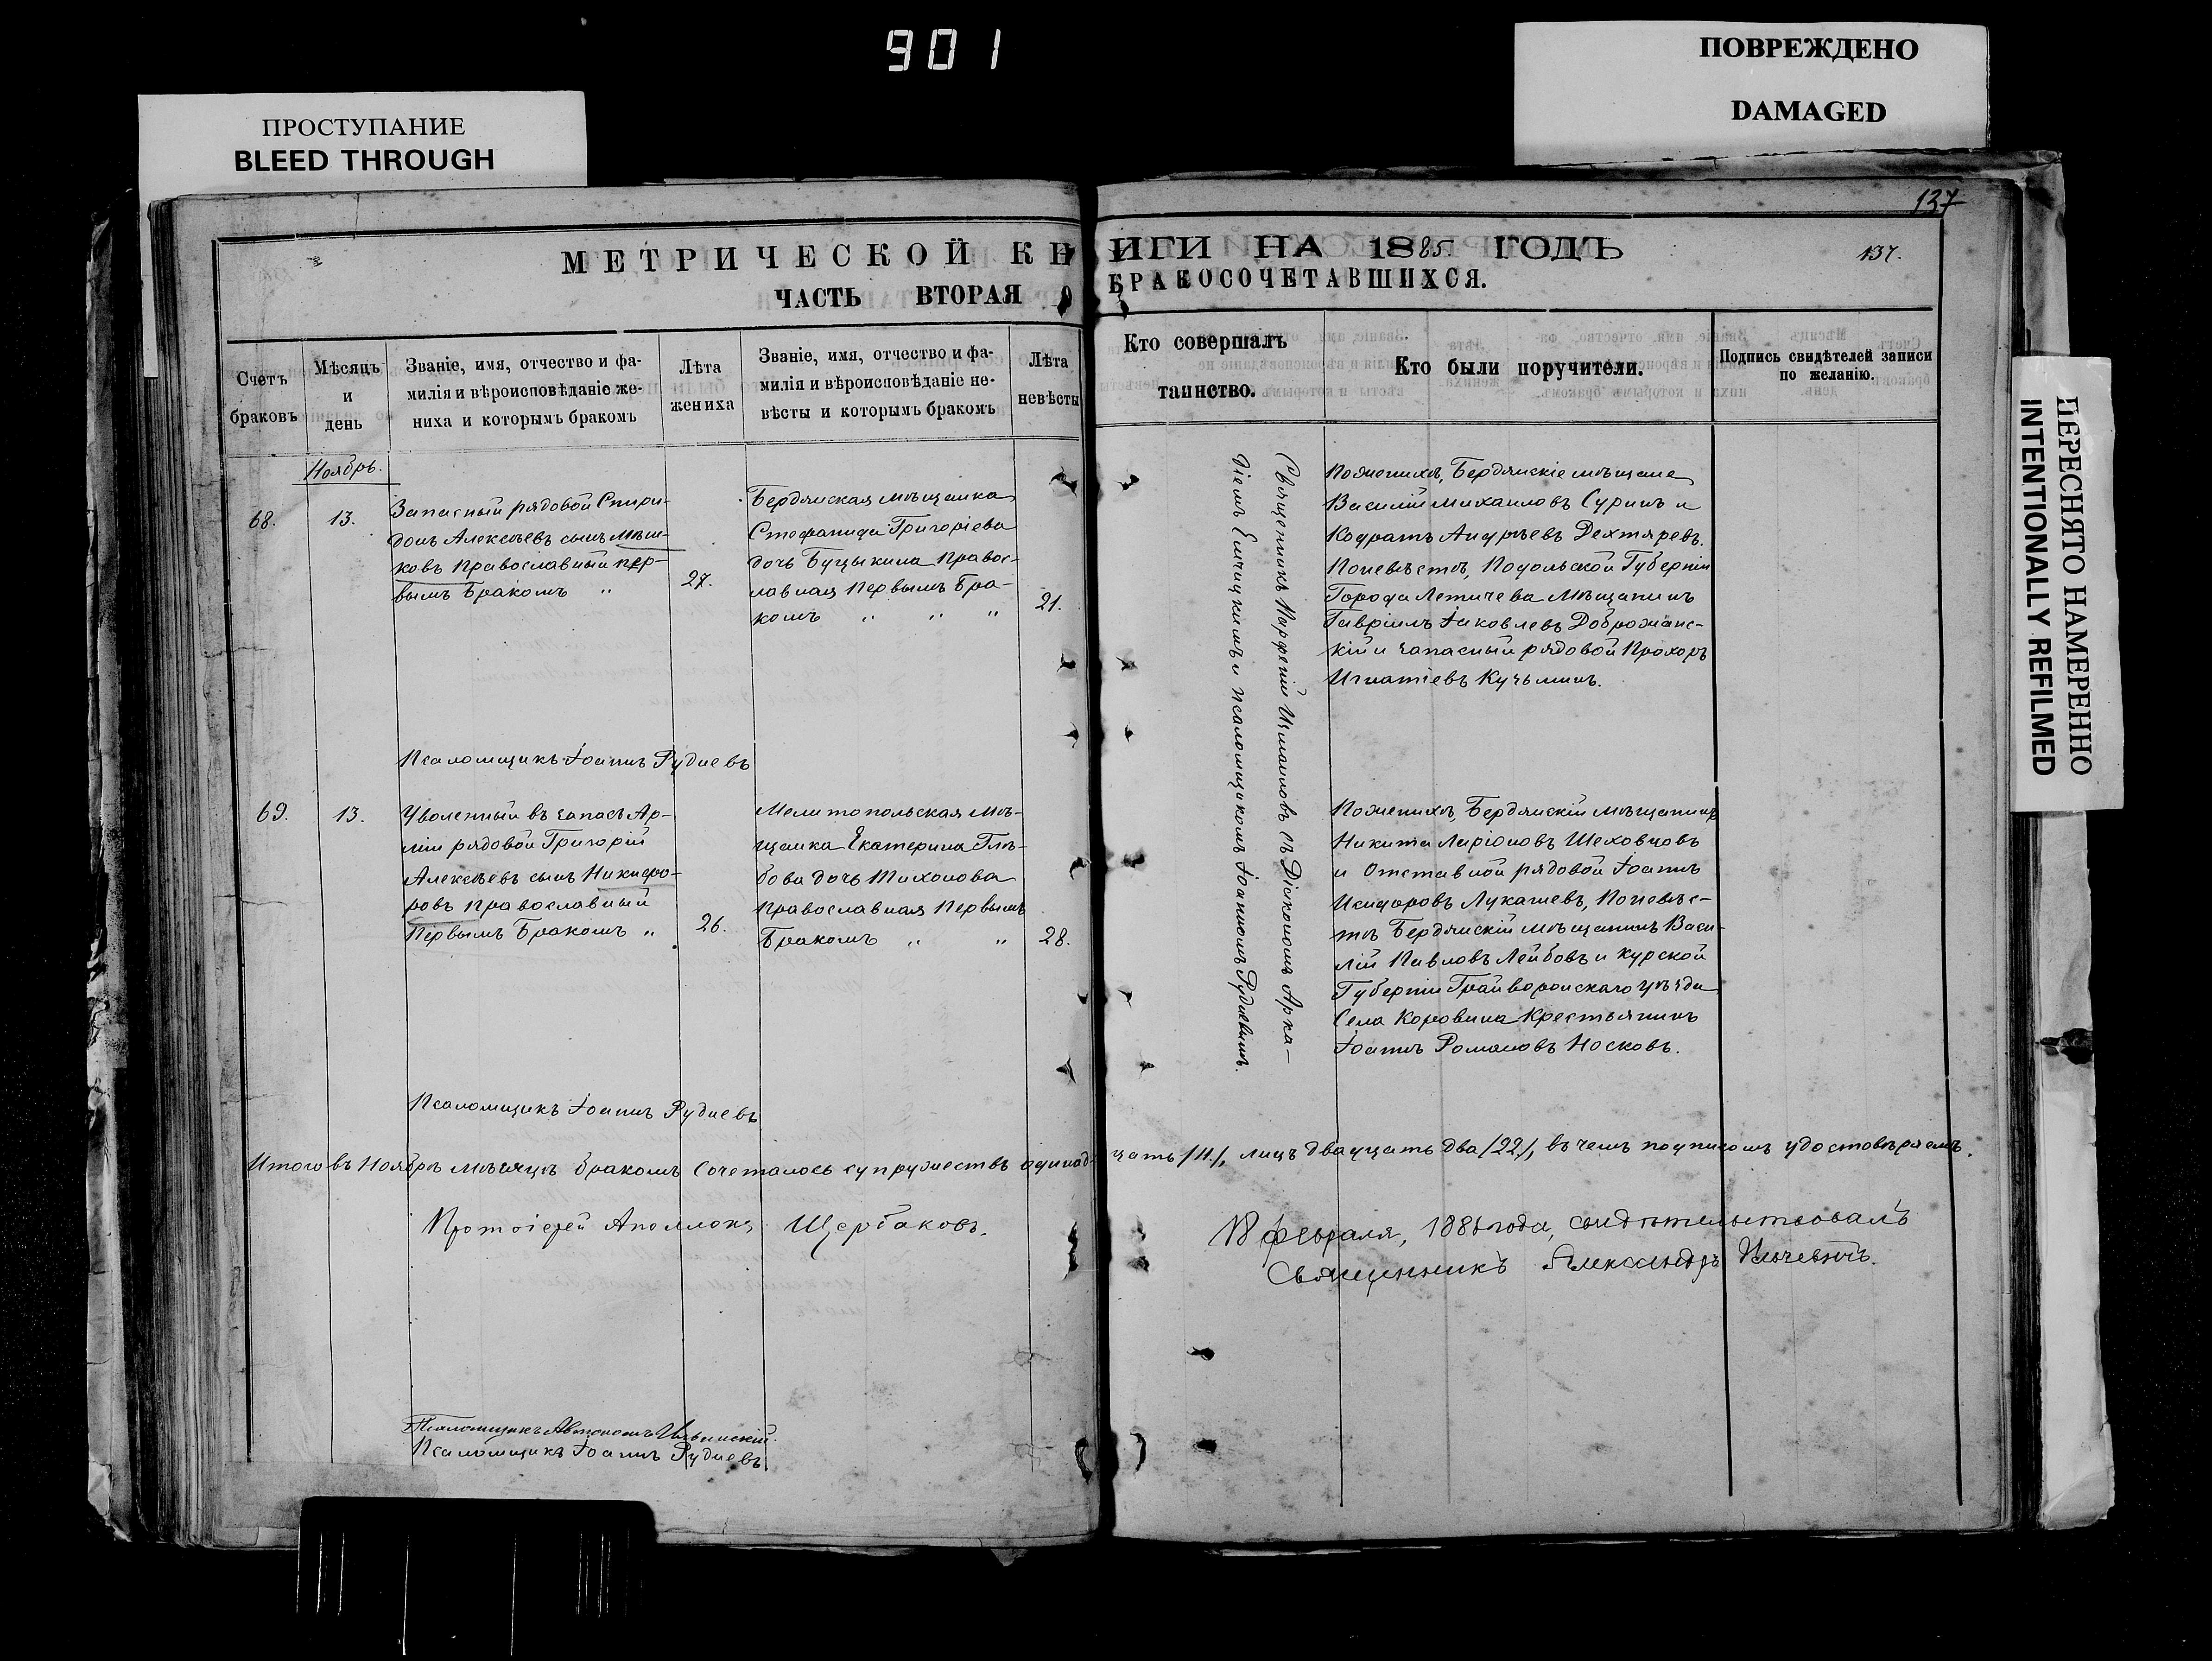 901
ПОВРЕЖДЕНО
DAMAGED
ПРОСТУПАНИЕ
BLEED THROUGH
ПЕРЕСНЯТО НАМЕРЕННО
INTENTIONALLY REFILMED
137
МЕТРИЧЕСКОЙ КНИГИ НА 1885 ГОДЪ
137.
ЧАСТЬ ВТОРАЯ О БРАКОСОЧЕТАВШИХСЯ.
Счетъ
браковъ
Мѣсяцъ
и
день
Званіе, имя, отчество и фа-
милія и вѣроисповѣданіе же-
ниха и которымъ бракомъ
Лѣта
жениха
Званіе, имя, отчество и фа-
милія и вѣроисповѣданіе не-
вѣсты и которымъ бракомъ
Лѣта
невѣсты
Кто совершалъ
таинство.
Кто были поручители.
Подпись свидѣтелей записи
по желанію.
Ноябрь.
68.
13.
Запасный рядовой Спири-
донъ Алексѣевъ сынъ Мѣш-
ковъ Православный пер-
вымъ Бракомъ "
27.
Бердянская мѣщанка
Стефанида Григоріева
дочь Буцыкина Правос-
лавная Первымъ Бра-
комъ " " "
21.
Священникъ Парфеній Цимановъ съ Діакономъ Арка-
діемъ Емичицкимъ и псаломщикомъ Іоанномъ Рудневымъ.
Поженихѣ, Бердянскіе мѣщане
Василій Михаиловъ Суринъ и
Кодратъ Андрѣевъ Дехтяревъ.
Поневѣстѣ, Подольской Губерніи
Города Летичева Мѣщанинъ
Гавріилъ Іаковлевъ Доброжанс-
кій и запасный рядовой Прохоръ
Игнатіевъ Кучьминъ.
Псаломщикъ Іоаннъ Рудневъ
69.
13.
Уволенный въ запасъ Ар-
міи рядовой Григорій
Алексѣевъ сынъ Никифо-
ровъ Православный
Первымъ Бракомъ "
26.
Мелитопольская Мѣ-
щанка Екатерина Глѣ-
бова дочь Тихонова
Православная Первымъ
Бракомъ " "
28.
Поженихѣ, Бердянскій мѣщанинъ
Никита Ларіоновъ Шеховцовъ
и Отставной рядовой Іоаннъ
Исидоровъ Лукашевъ, Поневѣс-
тѣ Бердянскій мѣщанинъ Васи-
лій Павловъ Лейбовъ и Курской
Губерніи Грайворонскаго уѣзда
Села Коровина Крестьянинъ
Іоаннъ Романовъ Носковъ.
Псаломщикъ Іоаннъ Рудневъ
Итого въ Ноябрѣ мѣсяцѣ бракомъ Сочеталось супружествъ одинад-цать /11./, лицъ двадцать два /22/, въ чемъ подписомъ удостовѣряемъ.
Протоіерей Аполлонъ Щербаковъ.
18 февраля, 1886 года, свидѣтельствовалъ
Священникъ Александръ
Псаломщикъ Автономъ Ильинскій.
Псаломщикъ Іоаннъ Рудневъ.